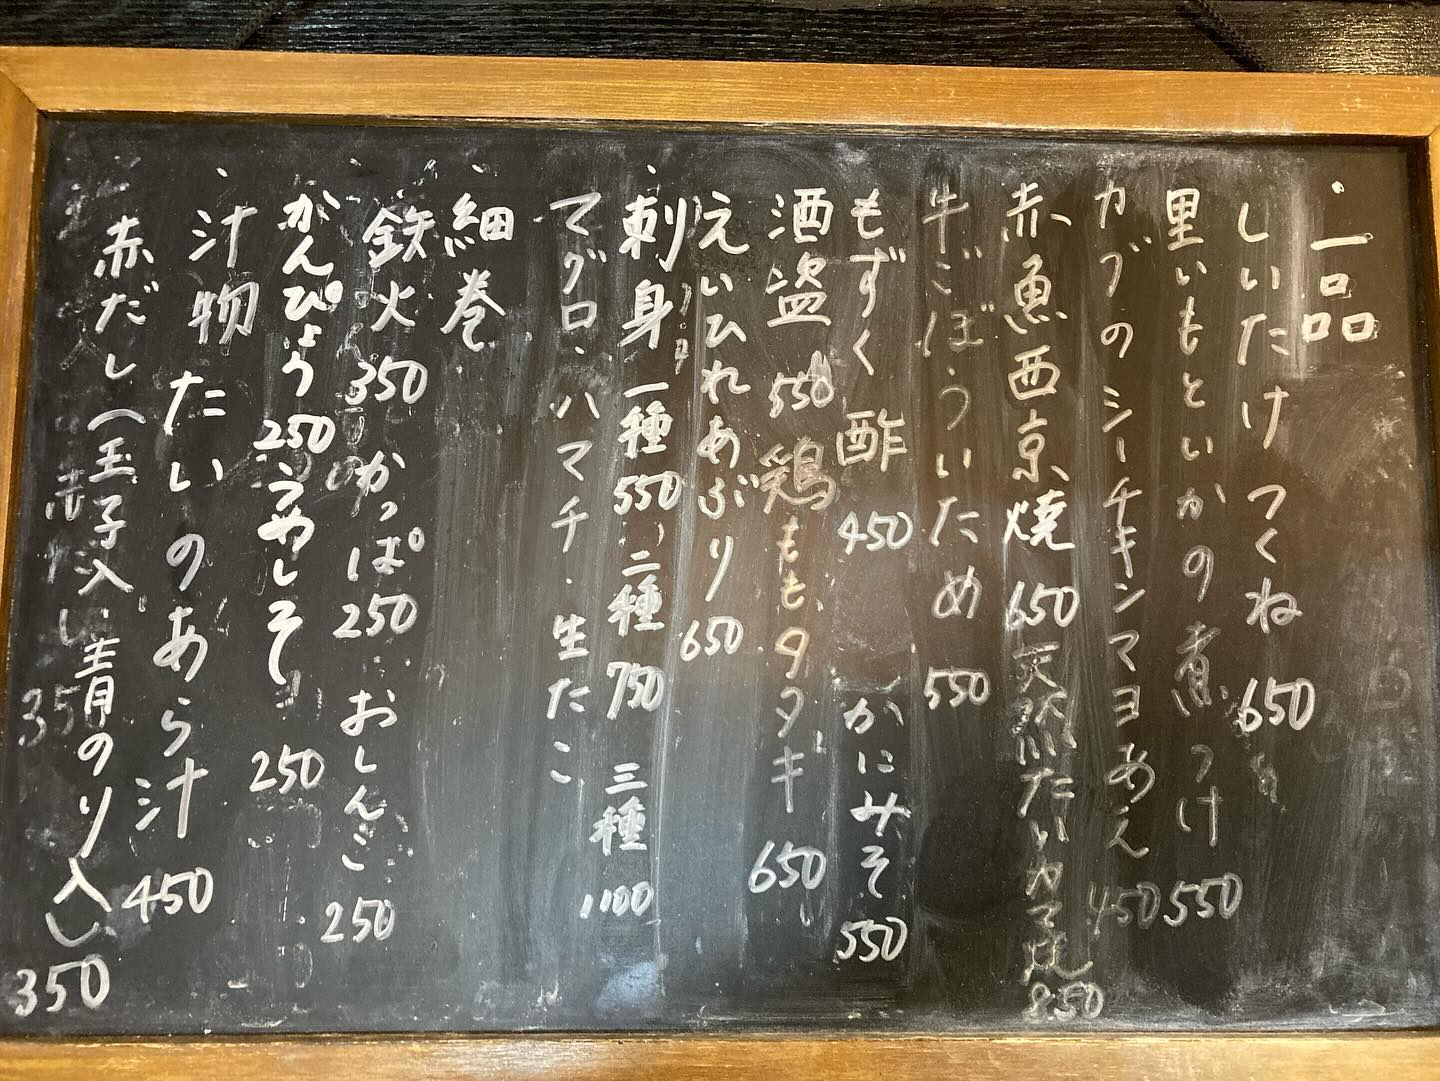 ・一品
しいたけつくね 650
里いもといかの煮つけ 550
カブのシーチキンマヨあえ 450
赤魚西京焼 650 天然たいカマ焼 850
牛ごぼういため 550
もずく酢 450 かにみそ 550
酒盗 550 鶏ももタタキ 650
えいひれあぶり 650
・刺身 一種 550 二種 750 三種 1100
マグロ・ハマチ・生たこ
・細巻
鉄火 350 かっぱ 250 おしんこ 250
かんぴょう 250 うめしそ 250
・汁物 たいのあら汁 450
赤だし（玉子入り 青のり入り 350